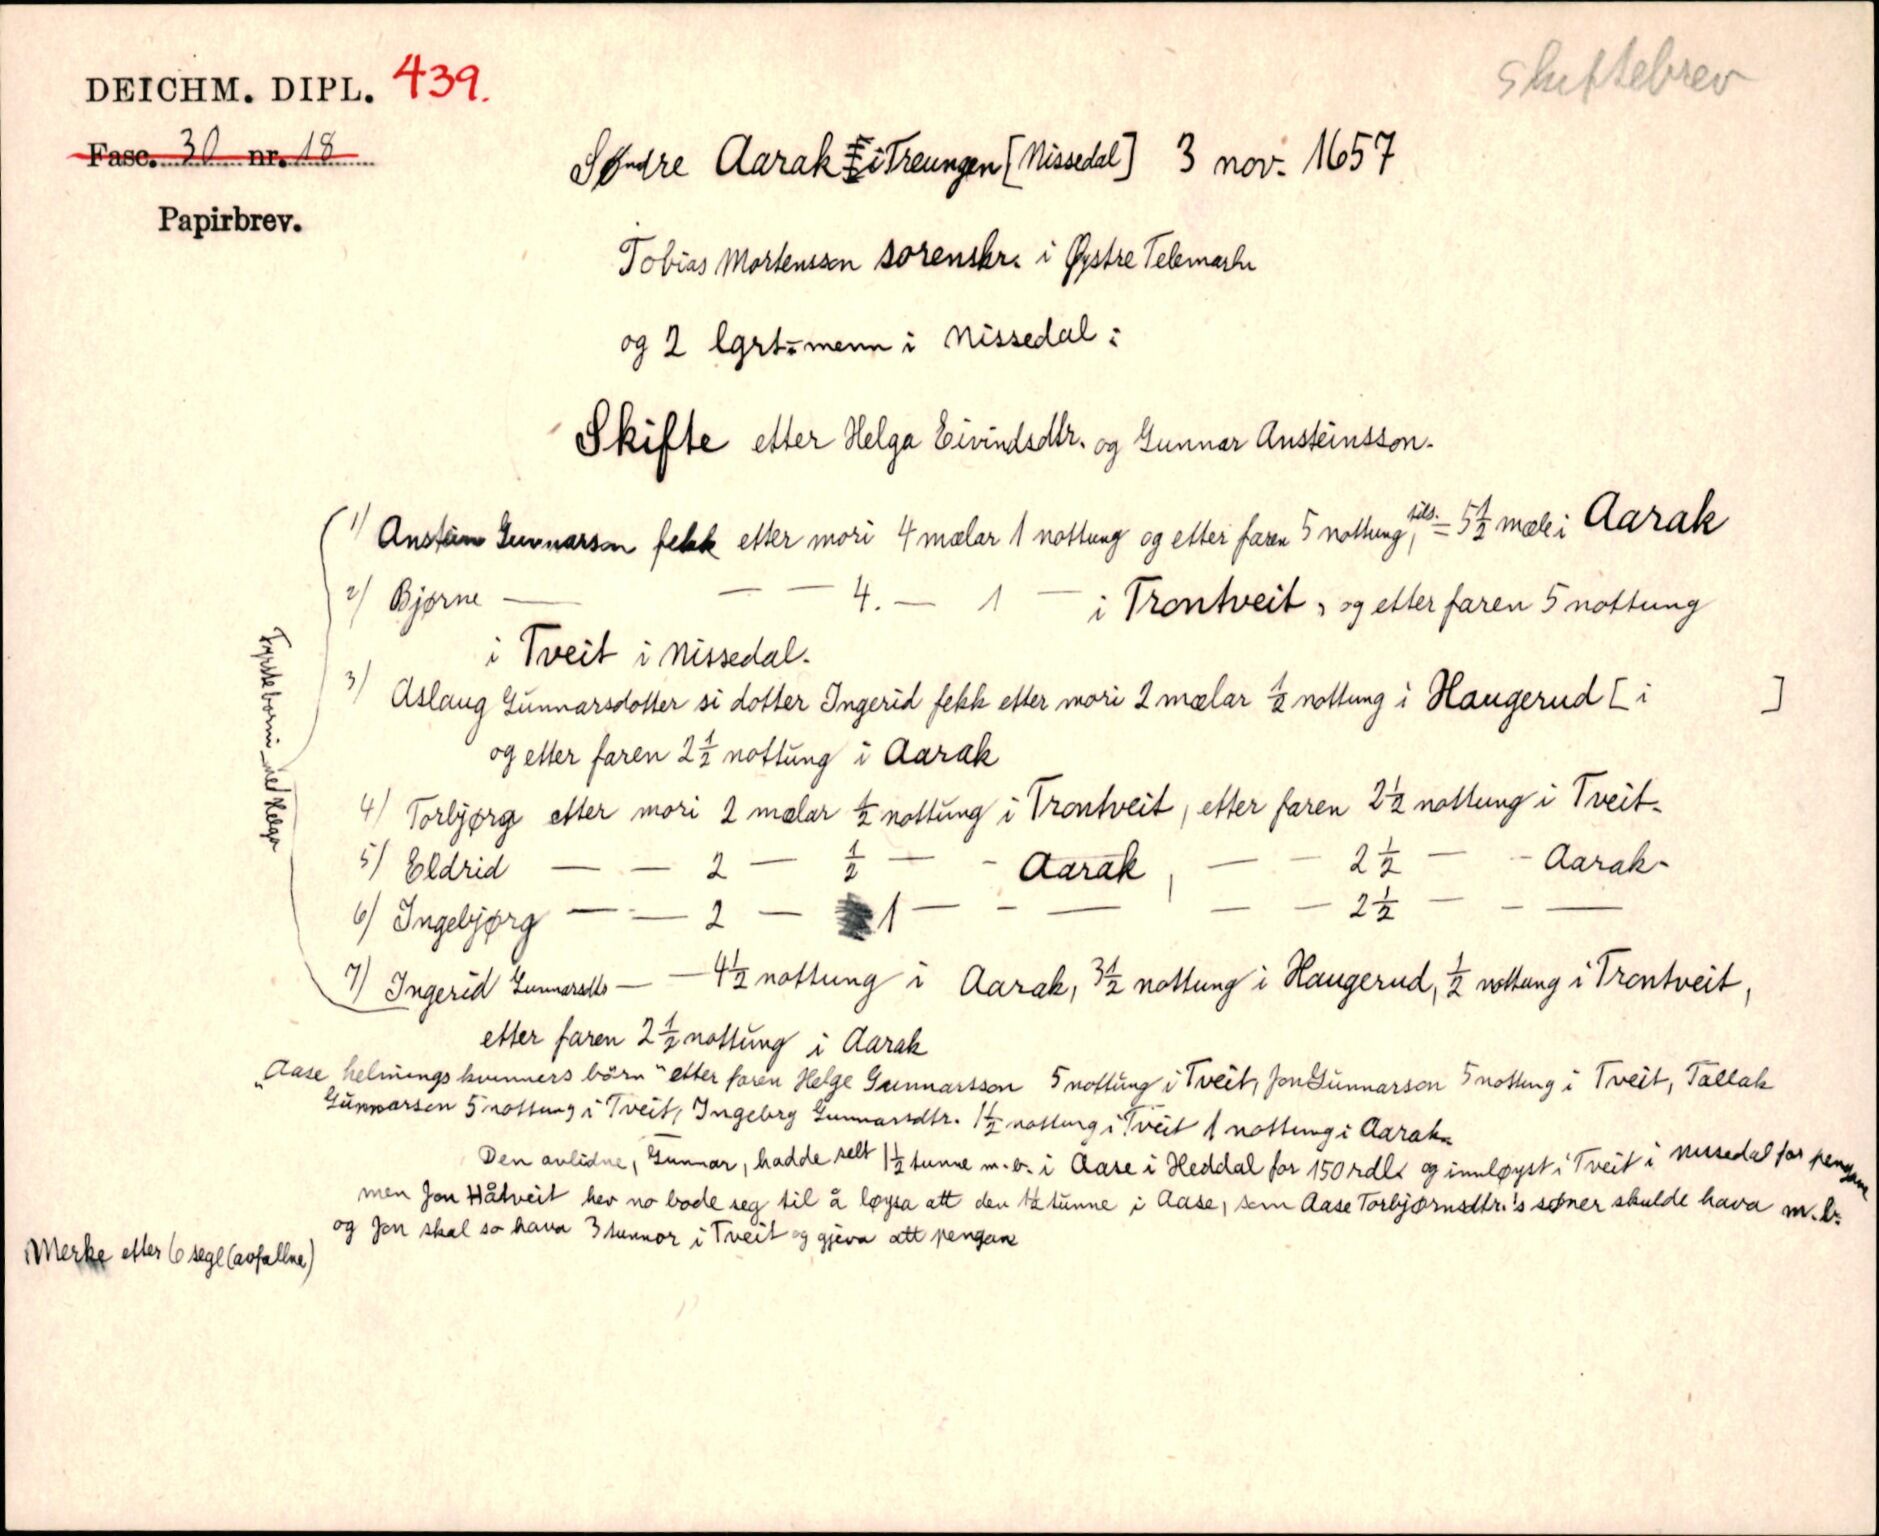 DEICHM. DIPL. 439.
skiftebrev
Fasc. 30 nr. 18
Papirbrev.
Søndre Aarak i Treungen [Nissedal] 3 nov. 1657
Tobias Mortensson sorenskr. i Øystre Telemark
og 2 lgrt.-menn i Nissedal:
Skifte etter Helga Eivindsdtr. og Gunnar Ansteinsson.
1) Anstein Gunnarson fekk etter mori 4 mælar 1 nottung og etter faren 5 nottung, tils. = 5 1/2 mæle i Aarak
2) Bjørne — — — 4. — 1 — i Trontveit, og etter faren 5 nottung
i Tveit i Nissedal.
3) Aslaug Gunnarsdotter si dotter Ingerid fekk etter mori 2 mælar 1/2 nottung i Haugerud [ i ]
og etter faren 2 1/2 nottung i Aarak
4) Torbjørg etter mori 2 mælar 1/2 nottung i Trontveit, etter faren 2 1/2 nottung i Tveit.
5) Eldrid — — 2 — 1/2 — - Aarak, — — 2 1/2 — - Aarak-
6) Ingebjørg — — 2 — 1 — - — — — 2 1/2 — - —
7) Ingerid Gunnarsdtr — — 4 1/2 nottung i Aarak, 3 1/2 nottung i Haugerud, 1/2 nottung i Trontveit,
etter faren 2 1/2 nottung i Aarak
Fyrste borni med Helga
"Aase helmings kvinners børn" etter faren Helge Gunnarsson 5 nottung i Tveit, Jon Gunnarson 5 nottung i Tveit, Tallak
Gunnarson 5 nottung i Tveit, Ingebrg Gunnarsdtr. 1 1/2 nottung i Tveit 1 nottung i Aarak.
Den avlidne, Gunnar, hadde selt 1 1/2 tunne m.b. i Aase i Heddal for 150 rdl. og innløyst i Tveit i Nissedal for pengane
men Jon Håtveit hev no bode seg til å løysa att den 1 1/2 tunne i Aase, som Aase Torbjørnsdtr.'s søner skulde hava m.b.
og Jon skal so hava 3 tunnor i Tveit og gjeva att pengane
Merke etter 6 segl (avfallne)